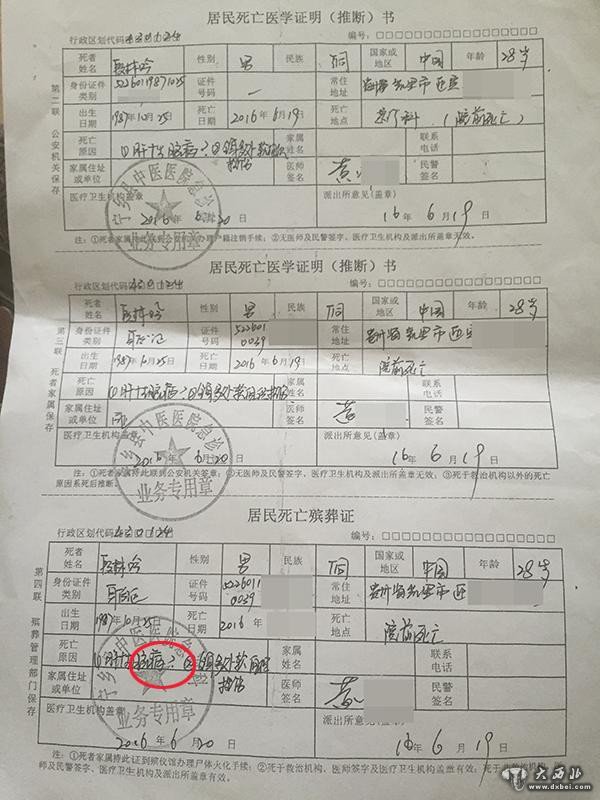 居民死亡医学证明（推断）书
行政区划代码 编号：□□□□□□□□□□□□□□□□□
第二联 公安机关保存
死者姓名 性别 男 民族 国家或地区 中国 年龄 28岁
身份证件类别 证件号码 常住地址 贵州省凯里市
出生日期 1987年10月25日 死亡日期 2016年6月19日 死亡地点 急诊科（院前死亡）
死亡原因 ①肝性脑病？②全身多处软组织挫伤 家属姓名 联系电话
家属住址或单位 医师签名 黄 民警签名
医疗卫生机构盖章 派出所意见（盖章）
2016年6月20日 16年6月19日
宁乡县中医医院急诊
业务专用章
注：①死者家属持此联到公安机关办理户籍注销手续；②无医师及民警签字、医疗卫生机构及派出所盖章无效。
居民死亡医学证明（推断）书
行政区划代码 编号：□□□□□□□□□□□□□□□□□
第三联 死者家属保存
死者姓名 性别 男 民族 国家或地区 中国 年龄 28岁
身份证件类别 身份证 证件号码 522601 0039 常住地址 贵州省凯里市
出生日期 1987年10月25日 死亡日期 2016年6月19日 死亡地点 院前死亡
死亡原因 ①肝性脑病？②全身多处软组织挫伤 家属姓名 联系电话
家属住址或单位 医师签名 黄 民警签名
医疗卫生机构盖章 派出所意见（盖章）
2016年6月20日 16年6月19日
宁乡县中医医院急诊
业务专用章
注：①死者家属持此联到公安机关签章；②无医师及民警签字、医疗卫生机构及派出所盖章无效；③死于救治机构以外的死亡原因系死后推断。
居民死亡殡葬证
行政区划代码 编号：□□□□□□□□□□□□□□□□□
第四联 殡葬管理部门保存
死者姓名 性别 男 民族 国家或地区 中国 年龄 28岁
身份证件类别 身份证 证件号码 522601 0039 常住地址 贵州省凯里市
出生日期 1987年10月25日 死亡日期 2016年 死亡地点 院前死亡
死亡原因 ①肝性脑病？②全身多处软组织挫伤 家属姓名 联系电话
家属住址或单位 医师签名 黄 民警签名
医疗卫生机构盖章 派出所意见（盖章）
2016年6月20日 16年6月19日
宁乡县中医医院急诊
业务专用章
注：①死者家属持此证到殡仪馆办理尸体火化手续；②死于救治机构，医师签字及医疗卫生机构盖章有效；死于
师及民警签字、医疗卫生机构及派出所盖章有效。
大西北
www.dxbei.com